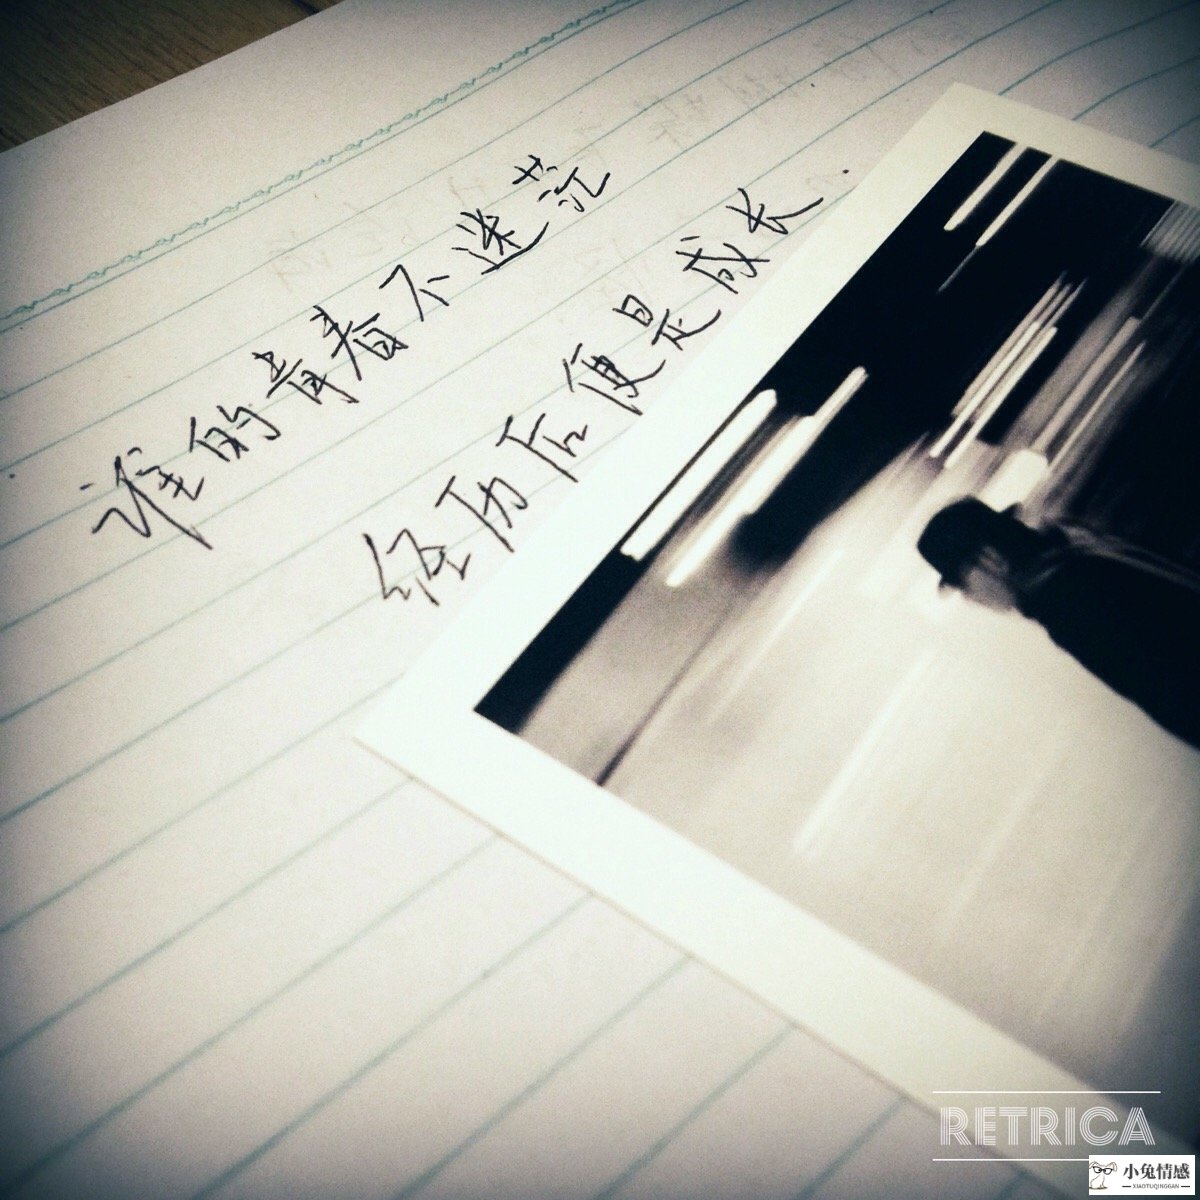 谁的青春不迷茫
经历后便是成长.
RETRICA
小兔情感
XIAOTUQINGGAN